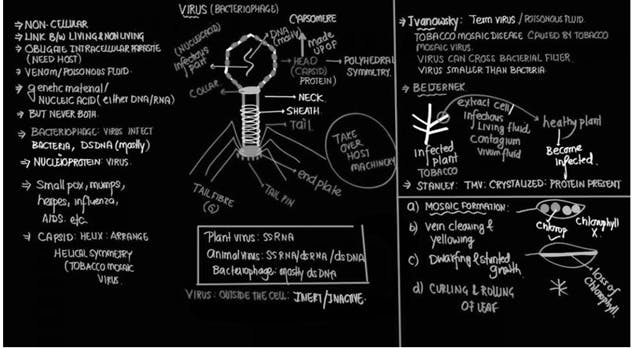 ⇒ NON-CELLULAR
⇒ LINK B/W LIVING & NONLIVING
⇒ OBLIGATE INTRACELLULAR PARASITE
(NEED HOST)
⇒ VENOM/POISONOUS FLUID.
⇒ genetic material/
NUCLEIC ACID (either DNA/RNA)
⇒ BUT NEVER BOTH.
⇒ BACTERIOPHAGE: VIRUS INFECT
BACTERIA, DSDNA (mostly)
⇒ NUCLEOPROTEIN VIRUS.
⇒ Small pox, mumps,
herpes, influenza,
AIDS. etc.
⇒ CAPSID: HELIX: ARRANGE
HELICAL SYMMETRY
(TOBACCO MOSAIC
VIRUS.
VIRUS (BACTERIOPHAGE)
CAPSOMERE
made
UP OF
DNA
(NUCLEOID)
Infectious
part
HEAD
(CAPSID)
PROTEIN)
POLYHEDRAL
SYMMETRY.
COLLAR
NECK
SHEATH
TAIL
TAKE
OVER
HOST
MACHINERY
end plate
TAIL PIN
TAIL FIBRE
(6)
Plant virus: SSRNA
Animal virus: SSRNA/dsRNA/dsDNA
Bacteriophage: mostly dsDNA
VIRUS: OUTSIDE THE CELL: INERT/INACTIVE.
⇒ Ivanowsky: Term virus / POISONOUS FLUID.
TOBACCO MOSAIC DISEASE CAUSED BY TOBACCO
MOSAIC VIRUS.
VIRUS CAN CROSS BACTERIAL FILTER
VIRUS SMALLER THAN BACTERIA.
⇒ BEIJERNEK
extract cell/
infectious
Living fluid,
Contagium
vivum fluid
healthy plant
Become
infected.
infected
plant
TOBACCO
⇒ STANLEY: TMV: CRYSTALIZED: PROTEIN PRESENT
a) MOSAIC FORMATION:
chlorophyll
X.
b) vein clearing &
yellowing
c) Dwarfing & stunted
growth.
loss of
chlorophyll.
d) CURLING & ROLLING
OF LEAF